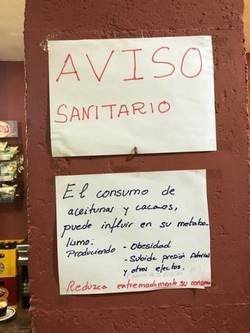 AVISO
SANITARIO
El consumo de
aceitunas y cacaos,
puede influir en su metabo-
lismo.
Produciendo - Obesidad
- Subida presión Arterial
y otros efectos.
Reduzca extremadamente su consumo